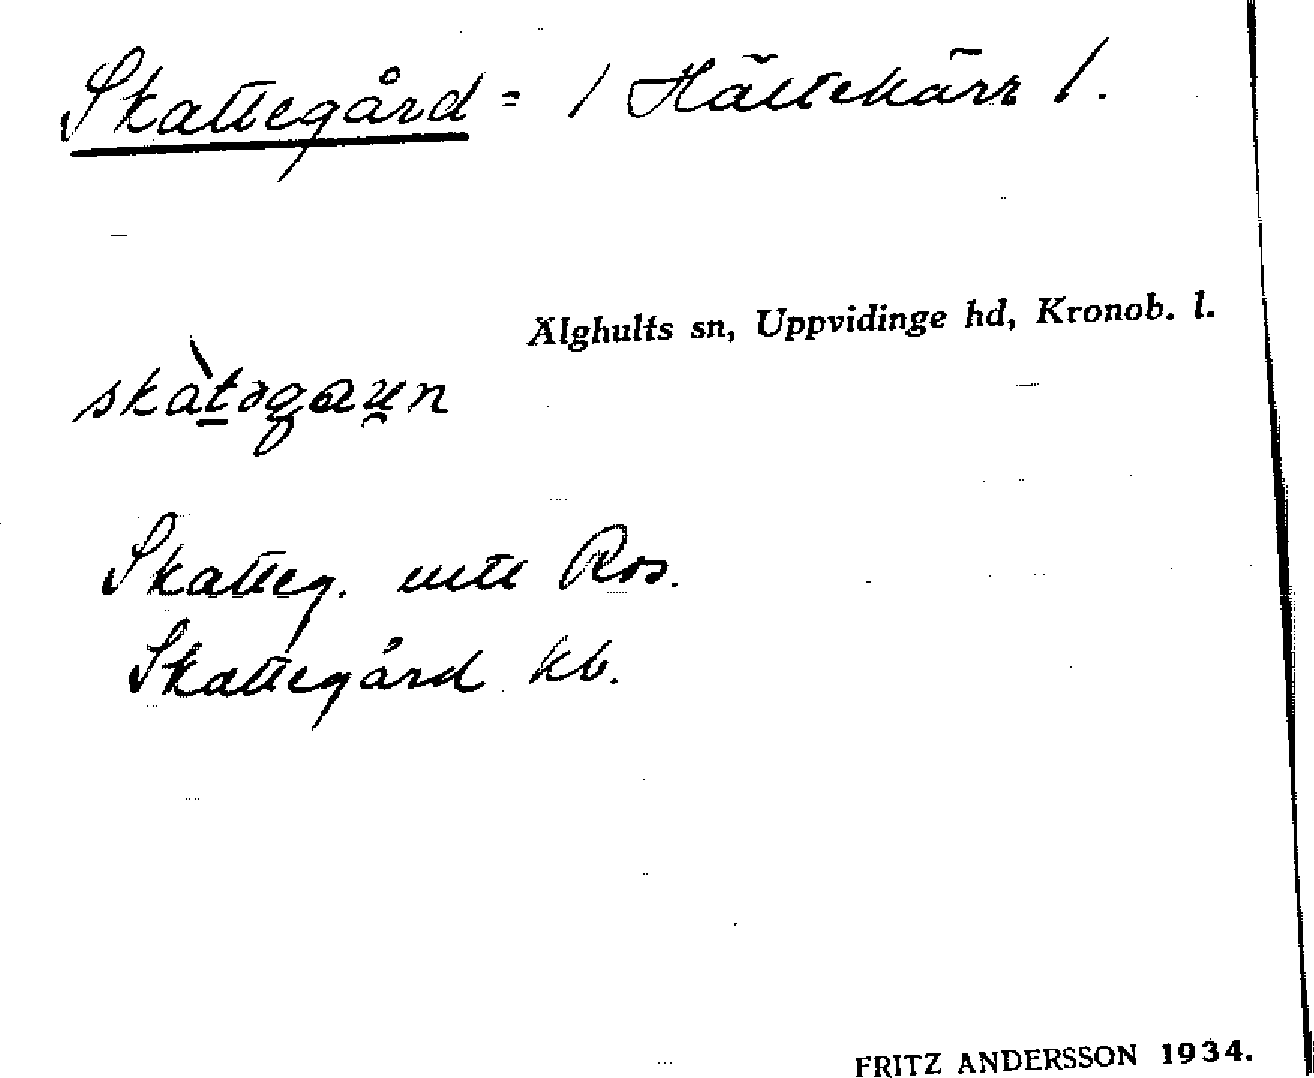 Skattegård = / Hältekärr /.
Älghults sn, Uppvidinge hd, Kronob. l.
Skatteg. uti Ros.
Skattegård kb.
FRITZ ANDERSSON 1934.